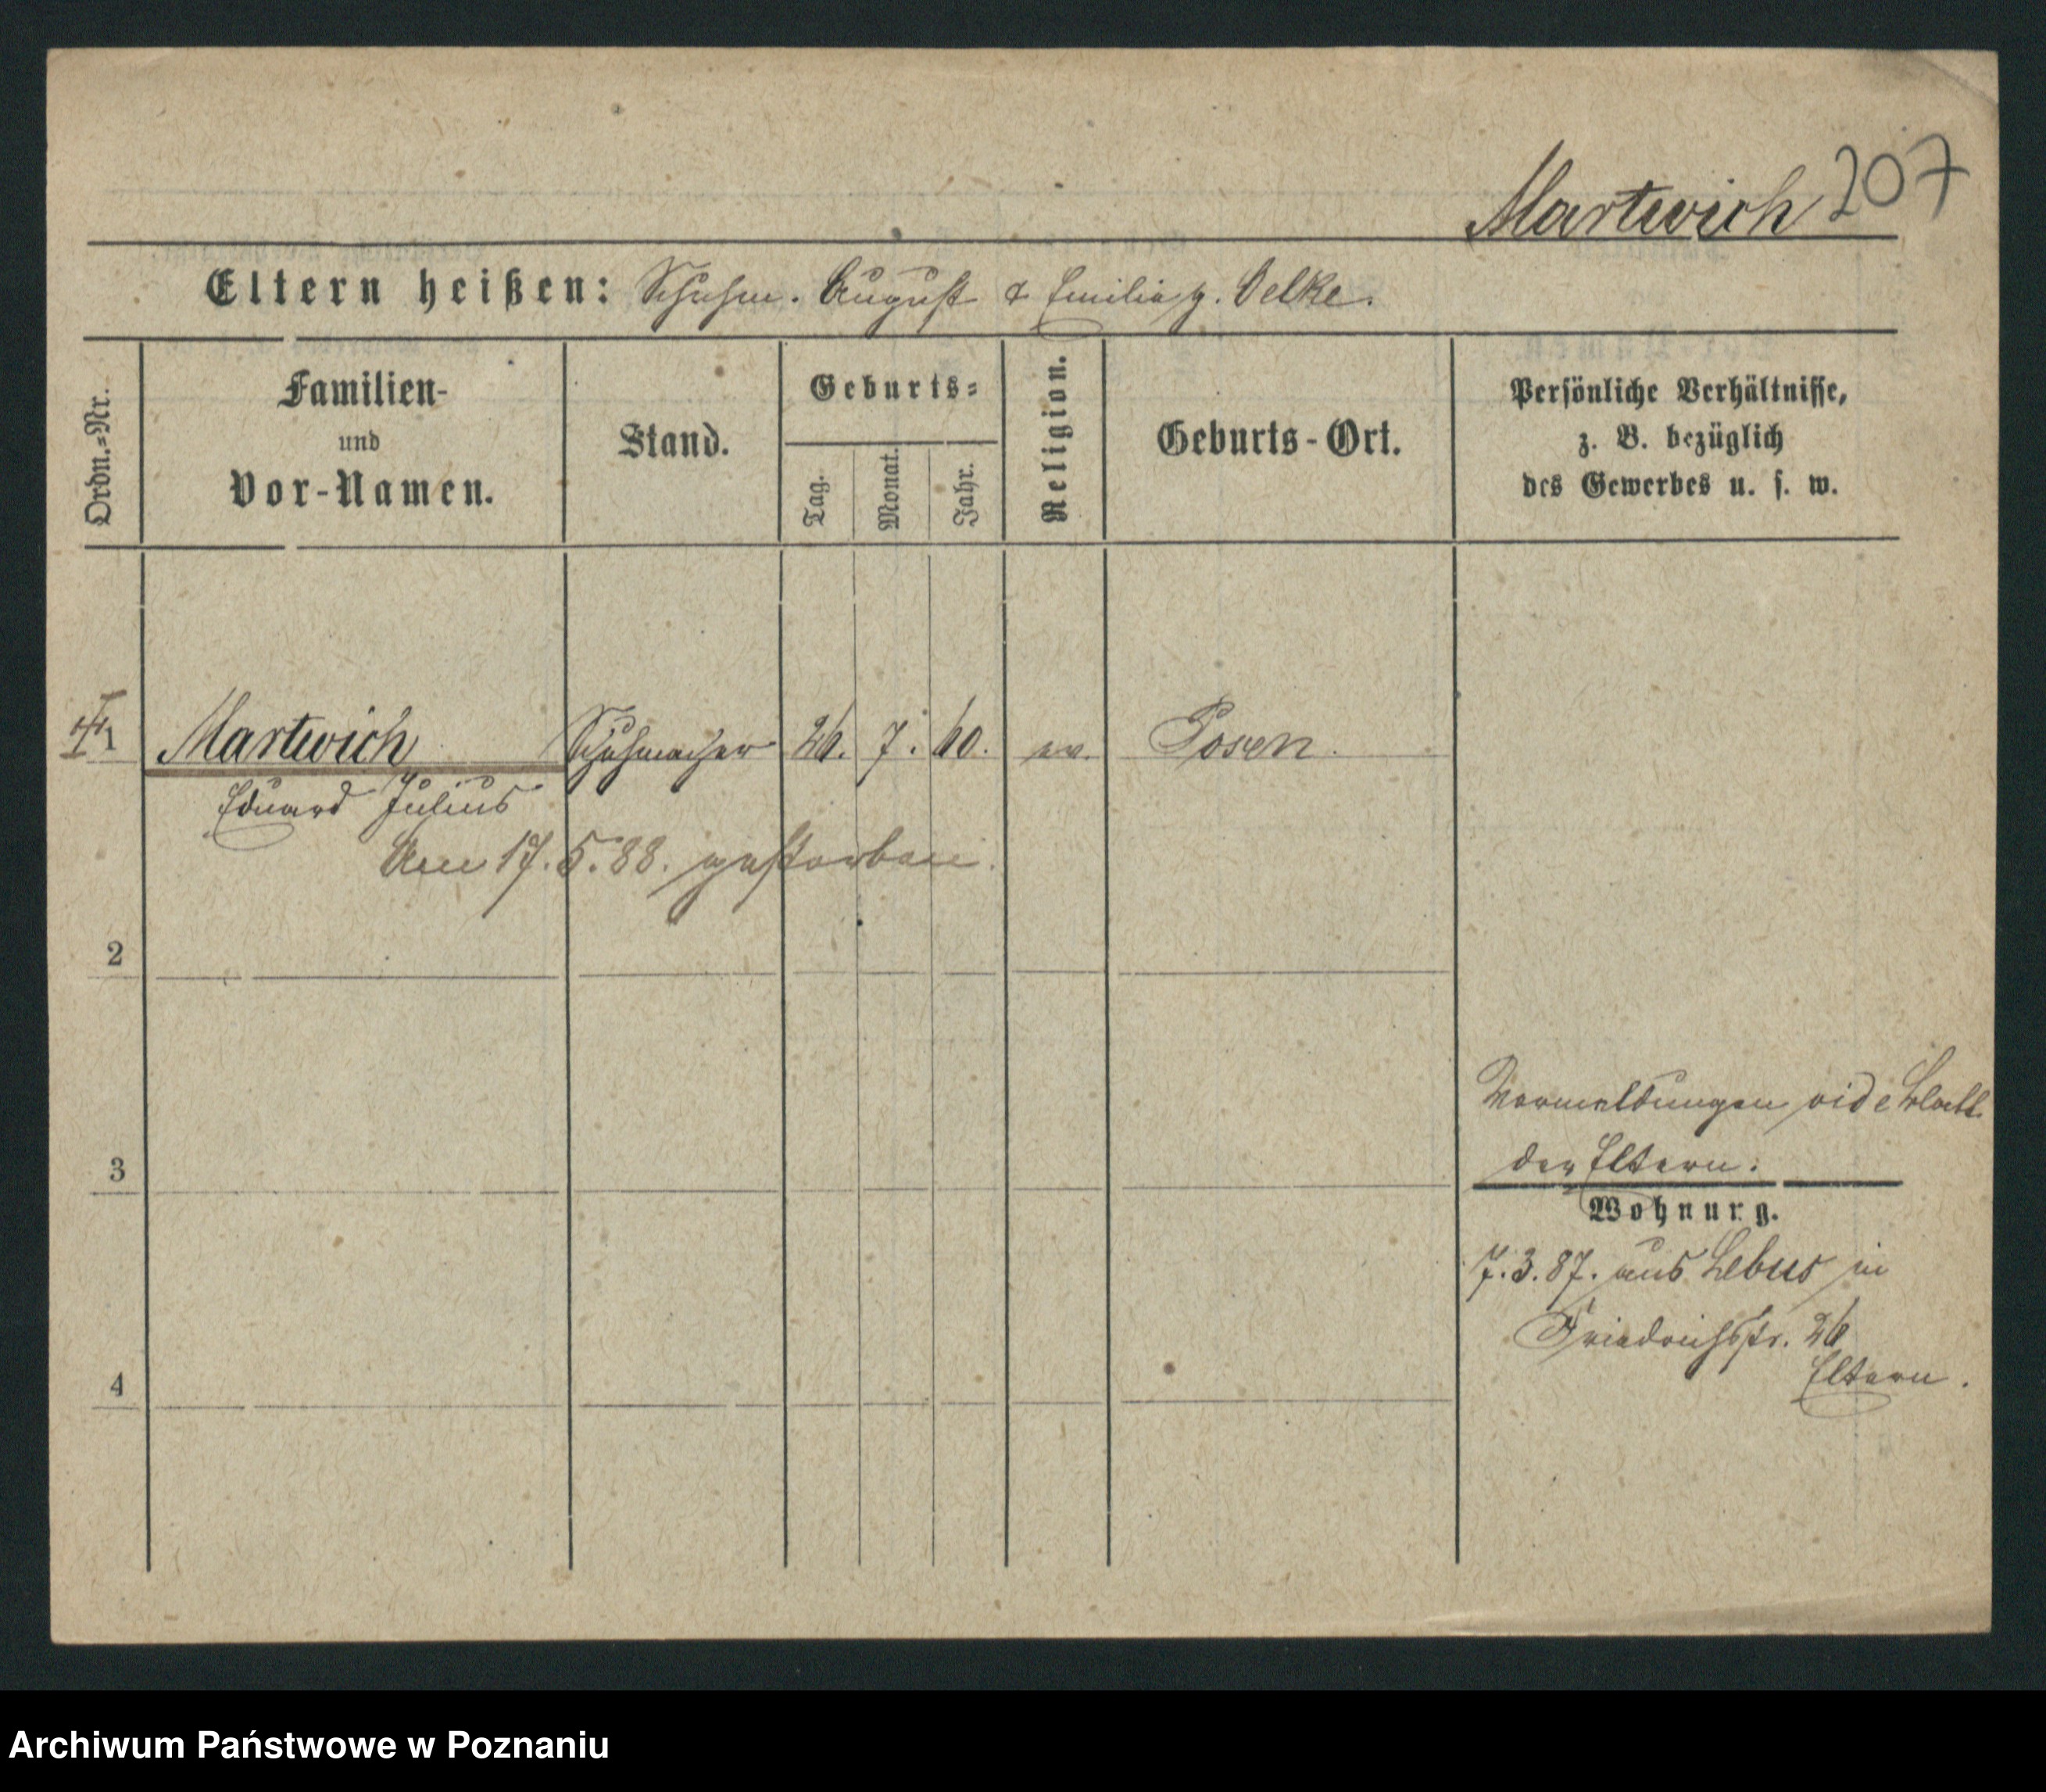 Martwich 207
Eltern heißen: Schuhm. August & Emilia g. Oelke.
Ordn.=Nr.
Familien-
und
Vor-Namen.
Stand.
Geburts=
Tag.
Monat.
Jahr.
Religion.
Geburts-Ort.
Persönliche Verhältnisse,
z. B. bezüglich
des Gewerbes u. s. w.
1 Martwich Schuhmacher 26. 7. 60. ev. Posen.
Eduard Julius
Am 17.5.88. gestorben.
2
Vormeldungen vide Blatt
3
der Eltern.
Wohnurg.
7.3.87. aus Lebus in
Friedrichsstr. 26
4
Eltern.
Archiwum Państwowe w Poznaniu